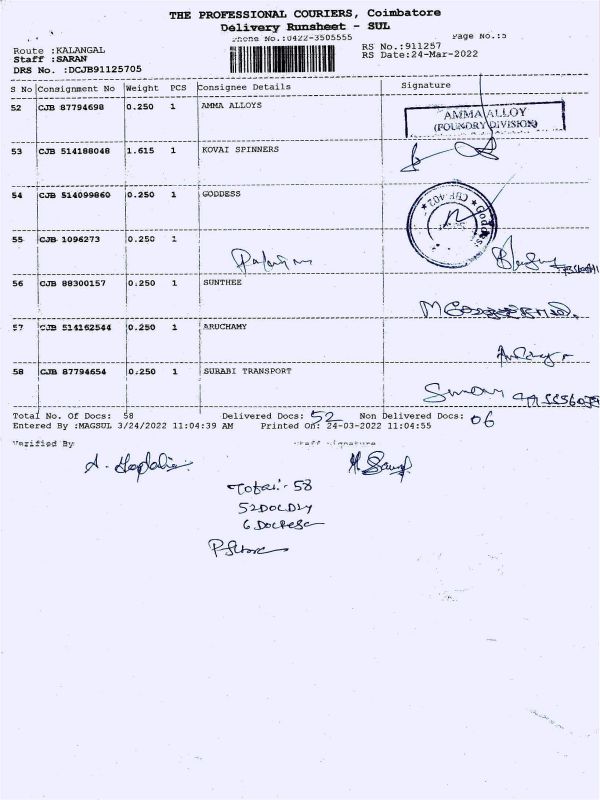 THE PROFESSIONAL COURIERS, Coimbatore
Delivery Runsheet - SUL
Phone No.:0422-3505555
Page No.:5
Route :KALANGAL
Staff :SARAN
DRS No. :DCJB91125705
RS No.:911257
RS Date:24-Mar-2022
S No Consignment No Weight PCS Consignee Details Signature
52 CJB 87794698 0.250 1 AMMA ALLOYS
AMMA ALLOY
(FOUNDRY DIVISION)
53 CJB 514188048 1.615 1 KOVAI SPINNERS
54 CJB 514099860 0.250 1 GODDESS
CBE 402
55 CJB 1096273 0.250 1
56 CJB 88300157 0.250 1 SUNTHEE
57 CJB 514162544 0.250 1 ARUCHAMY
58 CJB 87794654 0.250 1 SURABI TRANSPORT
Total No. Of Docs: 58 Delivered Docs: 52 Non Delivered Docs: 06
Entered By :MAGSUL 3/24/2022 11:04:39 AM Printed On: 24-03-2022 11:04:55
Verified By Staff Signature
Total:- 58
52 DOC DLY